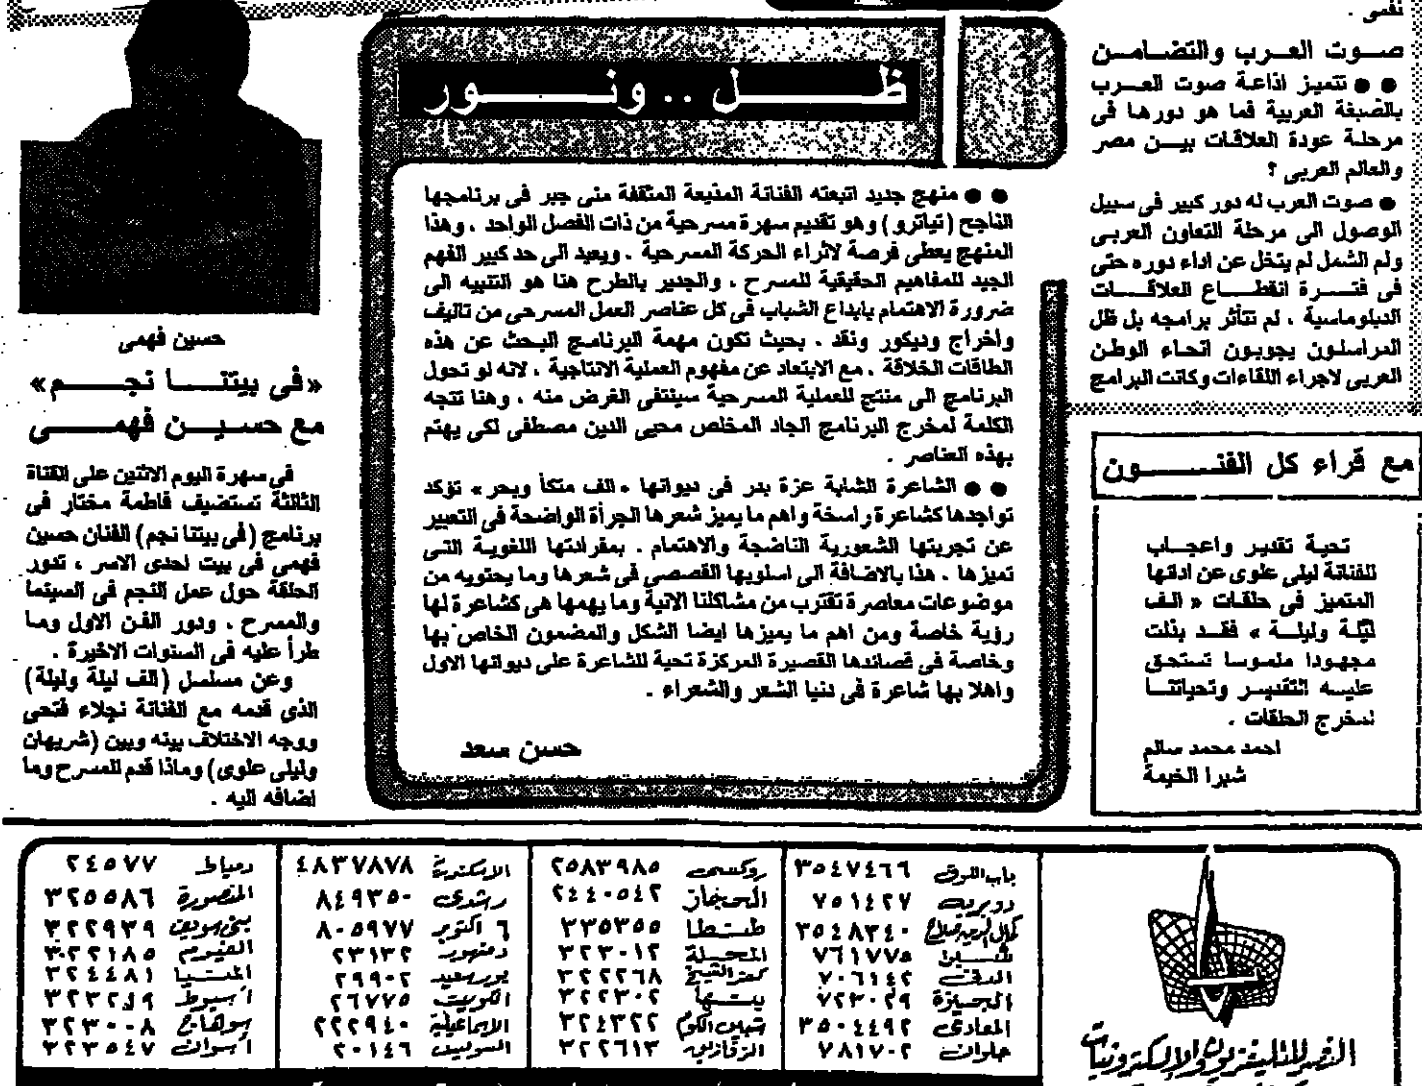 نفسى .
صوت العرب والتضامن
●● تتميز اذاعة صوت العرب
بالصبغة العربية فما هو دورها فى
مرحلة عودة العلاقات بين مصر
والعالم العربى ؟
● صوت العرب له دور كبير فى سبيل
الوصول الى مرحلة التعاون العربى
ولم الشمل لم يتخل عن اداء دوره حتى
فى فترة انقطاع العلاقات
الدبلوماسية ، لم تتأثر برامجه بل ظل
المراسلون يجوبون انحاء الوطن
العربى لاجراء اللقاءات وكانت البرامج
مع قراء كل الفنون
تحية تقدير واعجاب
للفنانة ليلى علوى عن ادائها
المتميز فى حلقات « الف
ليلة وليلة » فقد بذلت
مجهودا ملموسا تستحق
عليه التقدير وتحياتنا
لمخرج الحلقات .
احمد محمد سالم
شبرا الخيمة
ظل .. ونور
●● منهج جديد اتبعته الفنانة المذيعة المثقفة منى جبر فى برنامجها
الناجح ( تياترو ) وهو تقديم سهرة مسرحية من ذات الفصل الواحد . وهذا
المنهج يعطى فرصة لاثراء الحركة المسرحية . ويعيد الى حد كبير الفهم
الجيد للمفاهيم الحقيقية للمسرح . والجدير بالطرح هنا هو التنبيه الى
ضرورة الاهتمام بابداع الشباب فى كل عناصر العمل المسرحى من تاليف
واخراج وديكور ونقد . بحيث تكون مهمة البرنامج البحث عن هذه
الطاقات الخلاقة . مع الابتعاد عن مفهوم العملية الانتاجية ، لانه لو تحول
البرنامج الى منتج للعملية المسرحية سينتفى الغرض منه . وهنا تتجه
الكلمة لمخرج البرنامج الجاد المخلص محيى الدين مصطفى لكى يهتم
بهذه العناصر .
●● الشاعرة الشابة عزة بدر فى ديوانها « الف متكأ وبحر » تؤكد
تواجدها كشاعرة راسخة واهم ما يميز شعرها الجرأة الواضحة فى التعبير
عن تجربتها الشعورية الناضجة والاهتمام . بمفرادتها اللغوية التى
تميزها . هذا بالاضافة الى اسلوبها القصصى فى شعرها وما يحتويه من
موضوعات معاصرة تقترب من مشاكلنا الانية وما يهمها هى كشاعرة لها
رؤية خاصة ومن اهم ما يميزها ايضا الشكل والمضمون الخاص بها
وخاصة فى قصائدها القصيرة المركزة تحية للشاعرة على ديوانها الاول
واهلا بها شاعرة فى دنيا الشعر والشعراء .
حسن سعد
حسين فهمى
«فى بيتنا نجم»
مع حسين فهمى
فى سهرة اليوم الاثنين على القناة
الثالثة تستضيف فاطمة مختار فى
برنامج (فى بيتنا نجم) الفنان حسين
فهمى فى بيت احدى الاسر ، تدور
الحلقة حول عمل النجم فى السينما
والمسرح . ودور الفن الاول وما
طرأ عليه فى السنوات الاخيرة .
وعن مسلسل (الف ليلة وليلة)
الذى قدمه مع الفنانة نجلاء فتحى
ووجه الاختلاف بينه وبين (شريهان
وليلى علوى) وماذا قدم للمسرح وما
اضافه اليه .
النصر للتليفزيون والإلكترونيات
باب اللوق ٣٥٤٧٤٦٦
دوبريه ٧٥١٤٢٧
كمال الدين صلاح ٣٥٤٨٣٤٠
٧٦١٧٧٥
الدقى ٧٠٦١٤٢
الجيزة ٧٢٣٠٢٩
المعادى ٣٥٠٤٤٩٢
حلوان ٧٨١٧٠٢
روكسى ٢٥٨٣٩٨٥
الحجاز ٢٤٤٠٥٤٢
طنطا ٣٣٥٣٥٥
المحلة ٣٢٣٠١٢
كفر الشيخ ٣٢٢٢٦٨
بنها ٣٢٢٣٠٢
شبين الكوم ٣٢٤٣٢٢
الزقازيق ٣٢٢٦١٣
الاسكندرية ٤٨٣٧٨٧٨
رشدى ٨٤٩٣٥٠
٦ اكتوبر ٨٠٥٩٧٧
دمنهور ٢٣١٣٢
بورسعيد ٢٩٩٠٢
الكويت ٢٦٧٧٥
الاسماعيلية ٢٢٢٩٤٠
السويس ٢٠١٤٦
دمياط ٢٤٥٧٧
المنصورة ٣٢٥٥٨٦
بنى سويف ٣٢٢٩٣٩
الفيوم ٣٠٢٢١٨٥
المنيا ٣٢٤٤٨١
أسيوط
سوهاج ٣٢٣٠٠٨
أسوان ٣٢٣٥٤٧